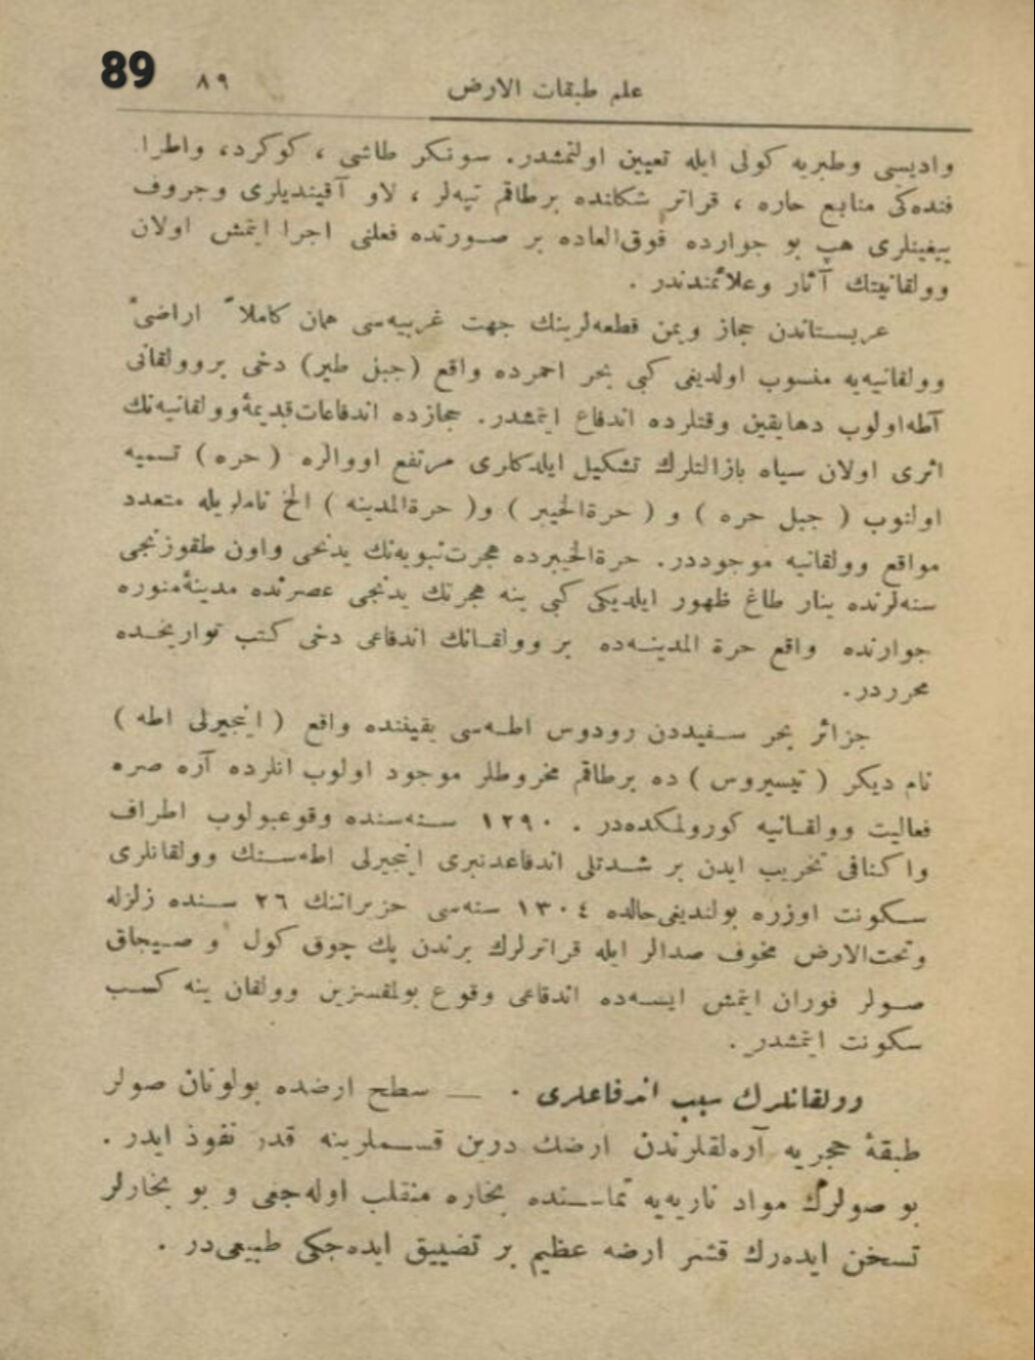 89
علم طبقات الارض ٨٩
واديسى وطبريه كولى ايله تعيين اولنمشدر. سونكر طاشى ، كوكرد، واطرا
فنده‌كى منابع حاره ، قراتر شكلنده برطاقم تپه‌لر ، لاو آقينديلرى وجروف
ييغينلرى هپ بو جوارده فوق‌العاده بر صورتده فعلنى اجرا ايتمش اولان
وولقانيتك آثار وعلائمندندر .
عربستاندن حجاز ويمن قطعه‌لرينك جهت غربيه‌سى همان كاملاً اراضىٔ
وولقانيه‌يه منسوب اولديغى كبى بحر احمرده واقع (جبل طير) دخى بروولقانى
آطه‌اولوب دهايقين وقتلرده اندفاع ايتمشدر. حجازده اندفاعات‌قديمهٔ‌وولقانيه‌نك
اثرى اولان سياه بازالتلرك تشكيل ايلدكلرى مرتفع اووالره ( حره ) تسميه
اولنوب ( جبل حره ) و ( حرةالخيبر ) و( حرةالمدينه ) الخ ناملريله متعدد
مواقع وولقانيه موجوددر. حرةالخيبرده هجرت‌نبويه‌نك يدنجى واون طقوزنجى
سنه‌لرنده ينار طاغ ظهور ايلديكى كبى ينه هجرتك يدنجى عصرنده مدينهٔ‌منوره
جوارنده واقع حرة المدينه‌ده بر وولقانك اندفاعى دخى كتب تواريخده
محرردر.
جزائر بحر سفيددن رودوس اطه‌سى يقيننده واقع ( اينجيرلى اطه )
نام ديكر ( نيسيروس ) ده برطاقم مخروطلر موجود اولوب انلرده آره صره
فعاليت وولقانيه كورولمكده‌در . ١٢٩٠ سنه‌سنده وقوعبولوب اطراف
واكنافى تخريب ايدن بر شدتلى اندفاعدنبرى اينجيرلى اطه‌سنك وولقانلرى
سكونت اوزره بولنديغى‌حالده ١٣٠٤ سنه‌سى حزيراننك ٢٦ سنده زلزله
وتحت‌الارض مخوف صدالر ايله قراترلرك برندن پك چوق كول و صيجاق
صولر فوران ايتمش ايسه‌ده اندفاعى وقوع بولمقسزين وولقان ينه كسب
سكونت ايتمشدر .
وولقانلرك سبب اندفاعلرى . — سطح ارضده بولونان صولر
طبقهٔ حجريه آره‌لقلرندن ارضك درين قسملرينه قدر نفوذ ايدر .
بو صولرك مواد ناريه‌يه تماسنده بخاره منقلب اوله‌جغى و بو بخارلر
تسخن ايده‌رك قشر ارضه عظيم بر تضييق ايده‌جكى طبيعى‌در .